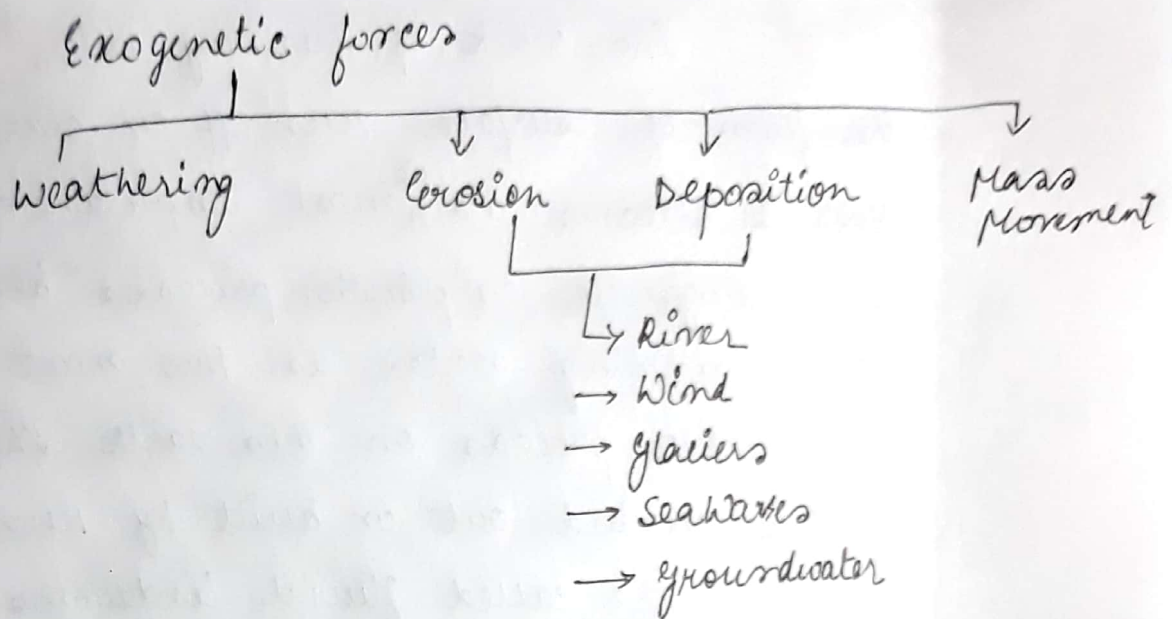 Exogenetic forces
Weathering Erosion Deposition Mass Movement
→ River
→ Wind
→ Glaciers
→ Seawaves
→ Groundwater